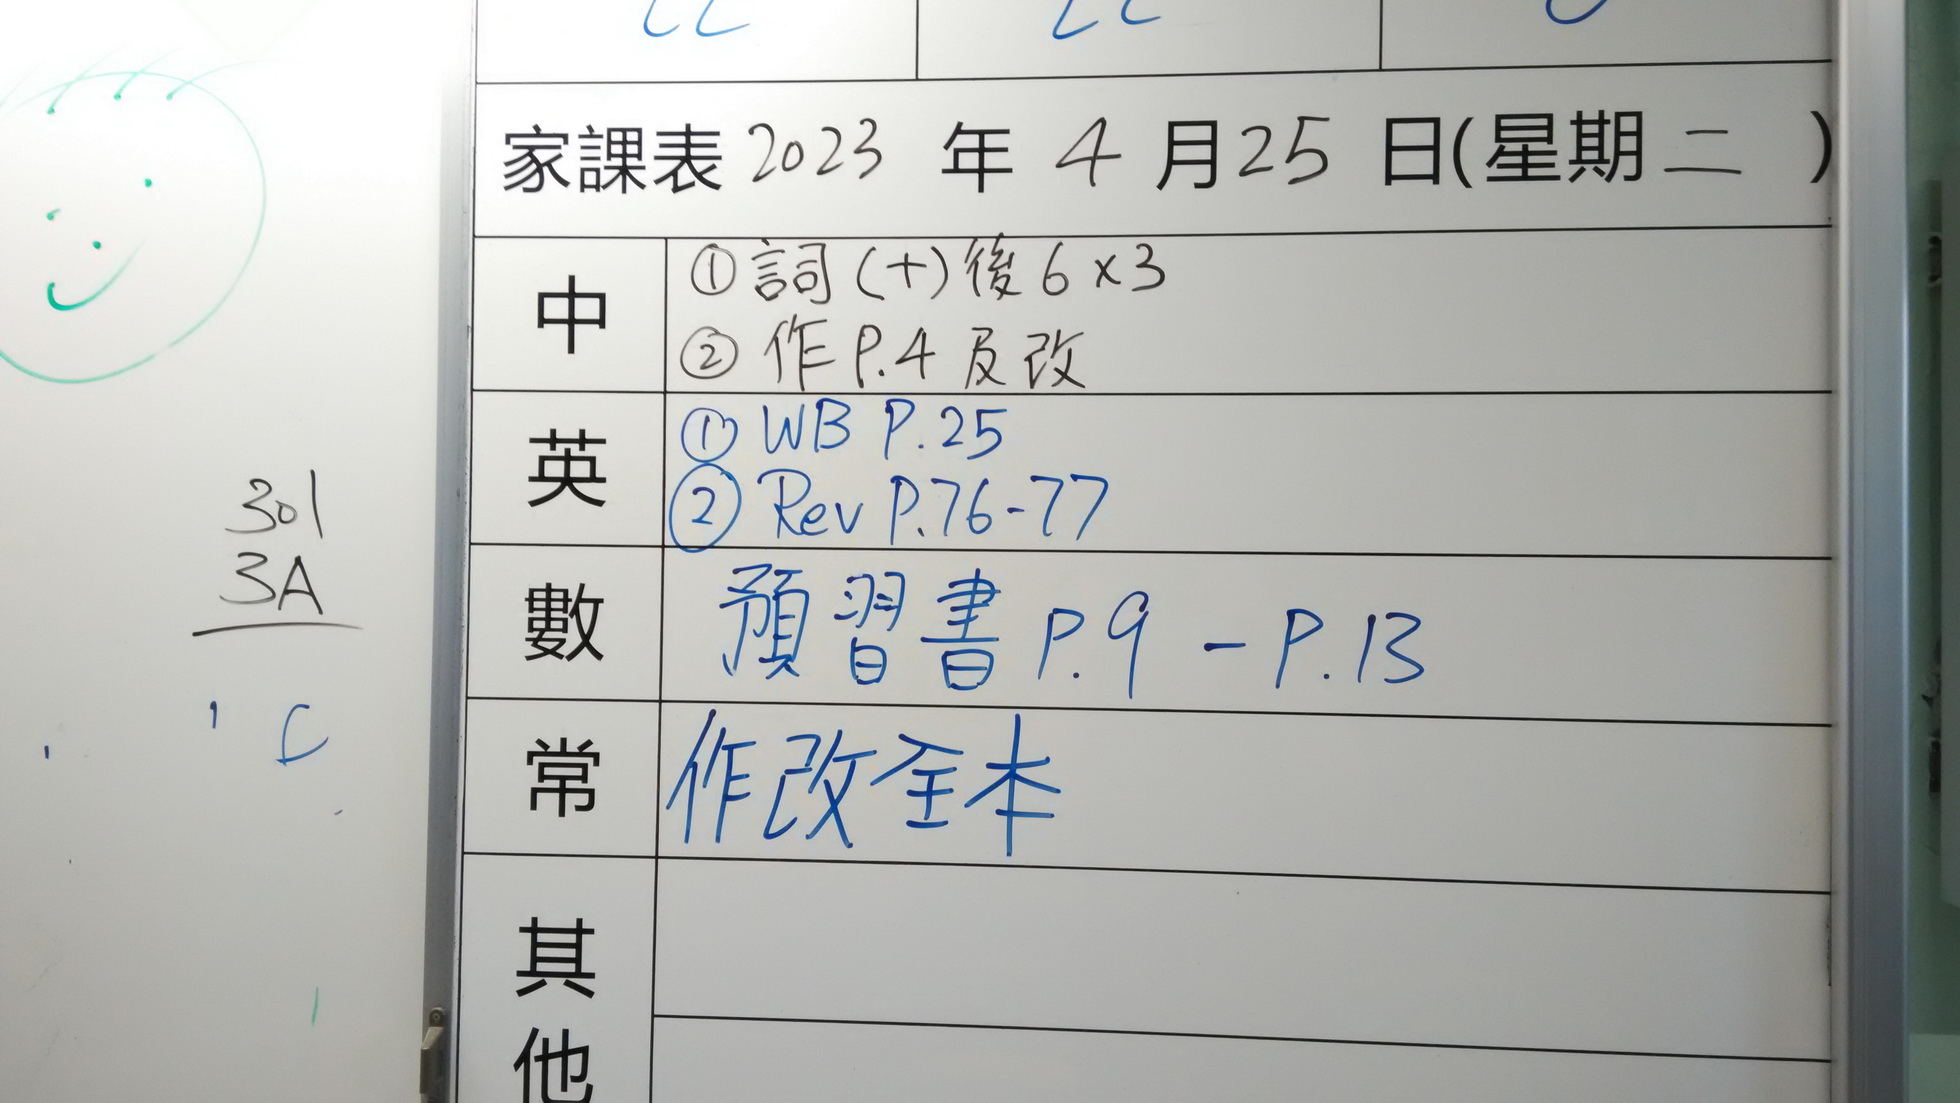 家課表 2023 年 4 月 25 日(星期 二 )
中
① 詞 (十) 後 6 x 3
② 作 P.4 及 改
英
① WB P.25
② Rev P.76-77
數
預習書 P.9 - P.13
常
作改全本
其他
301
3A